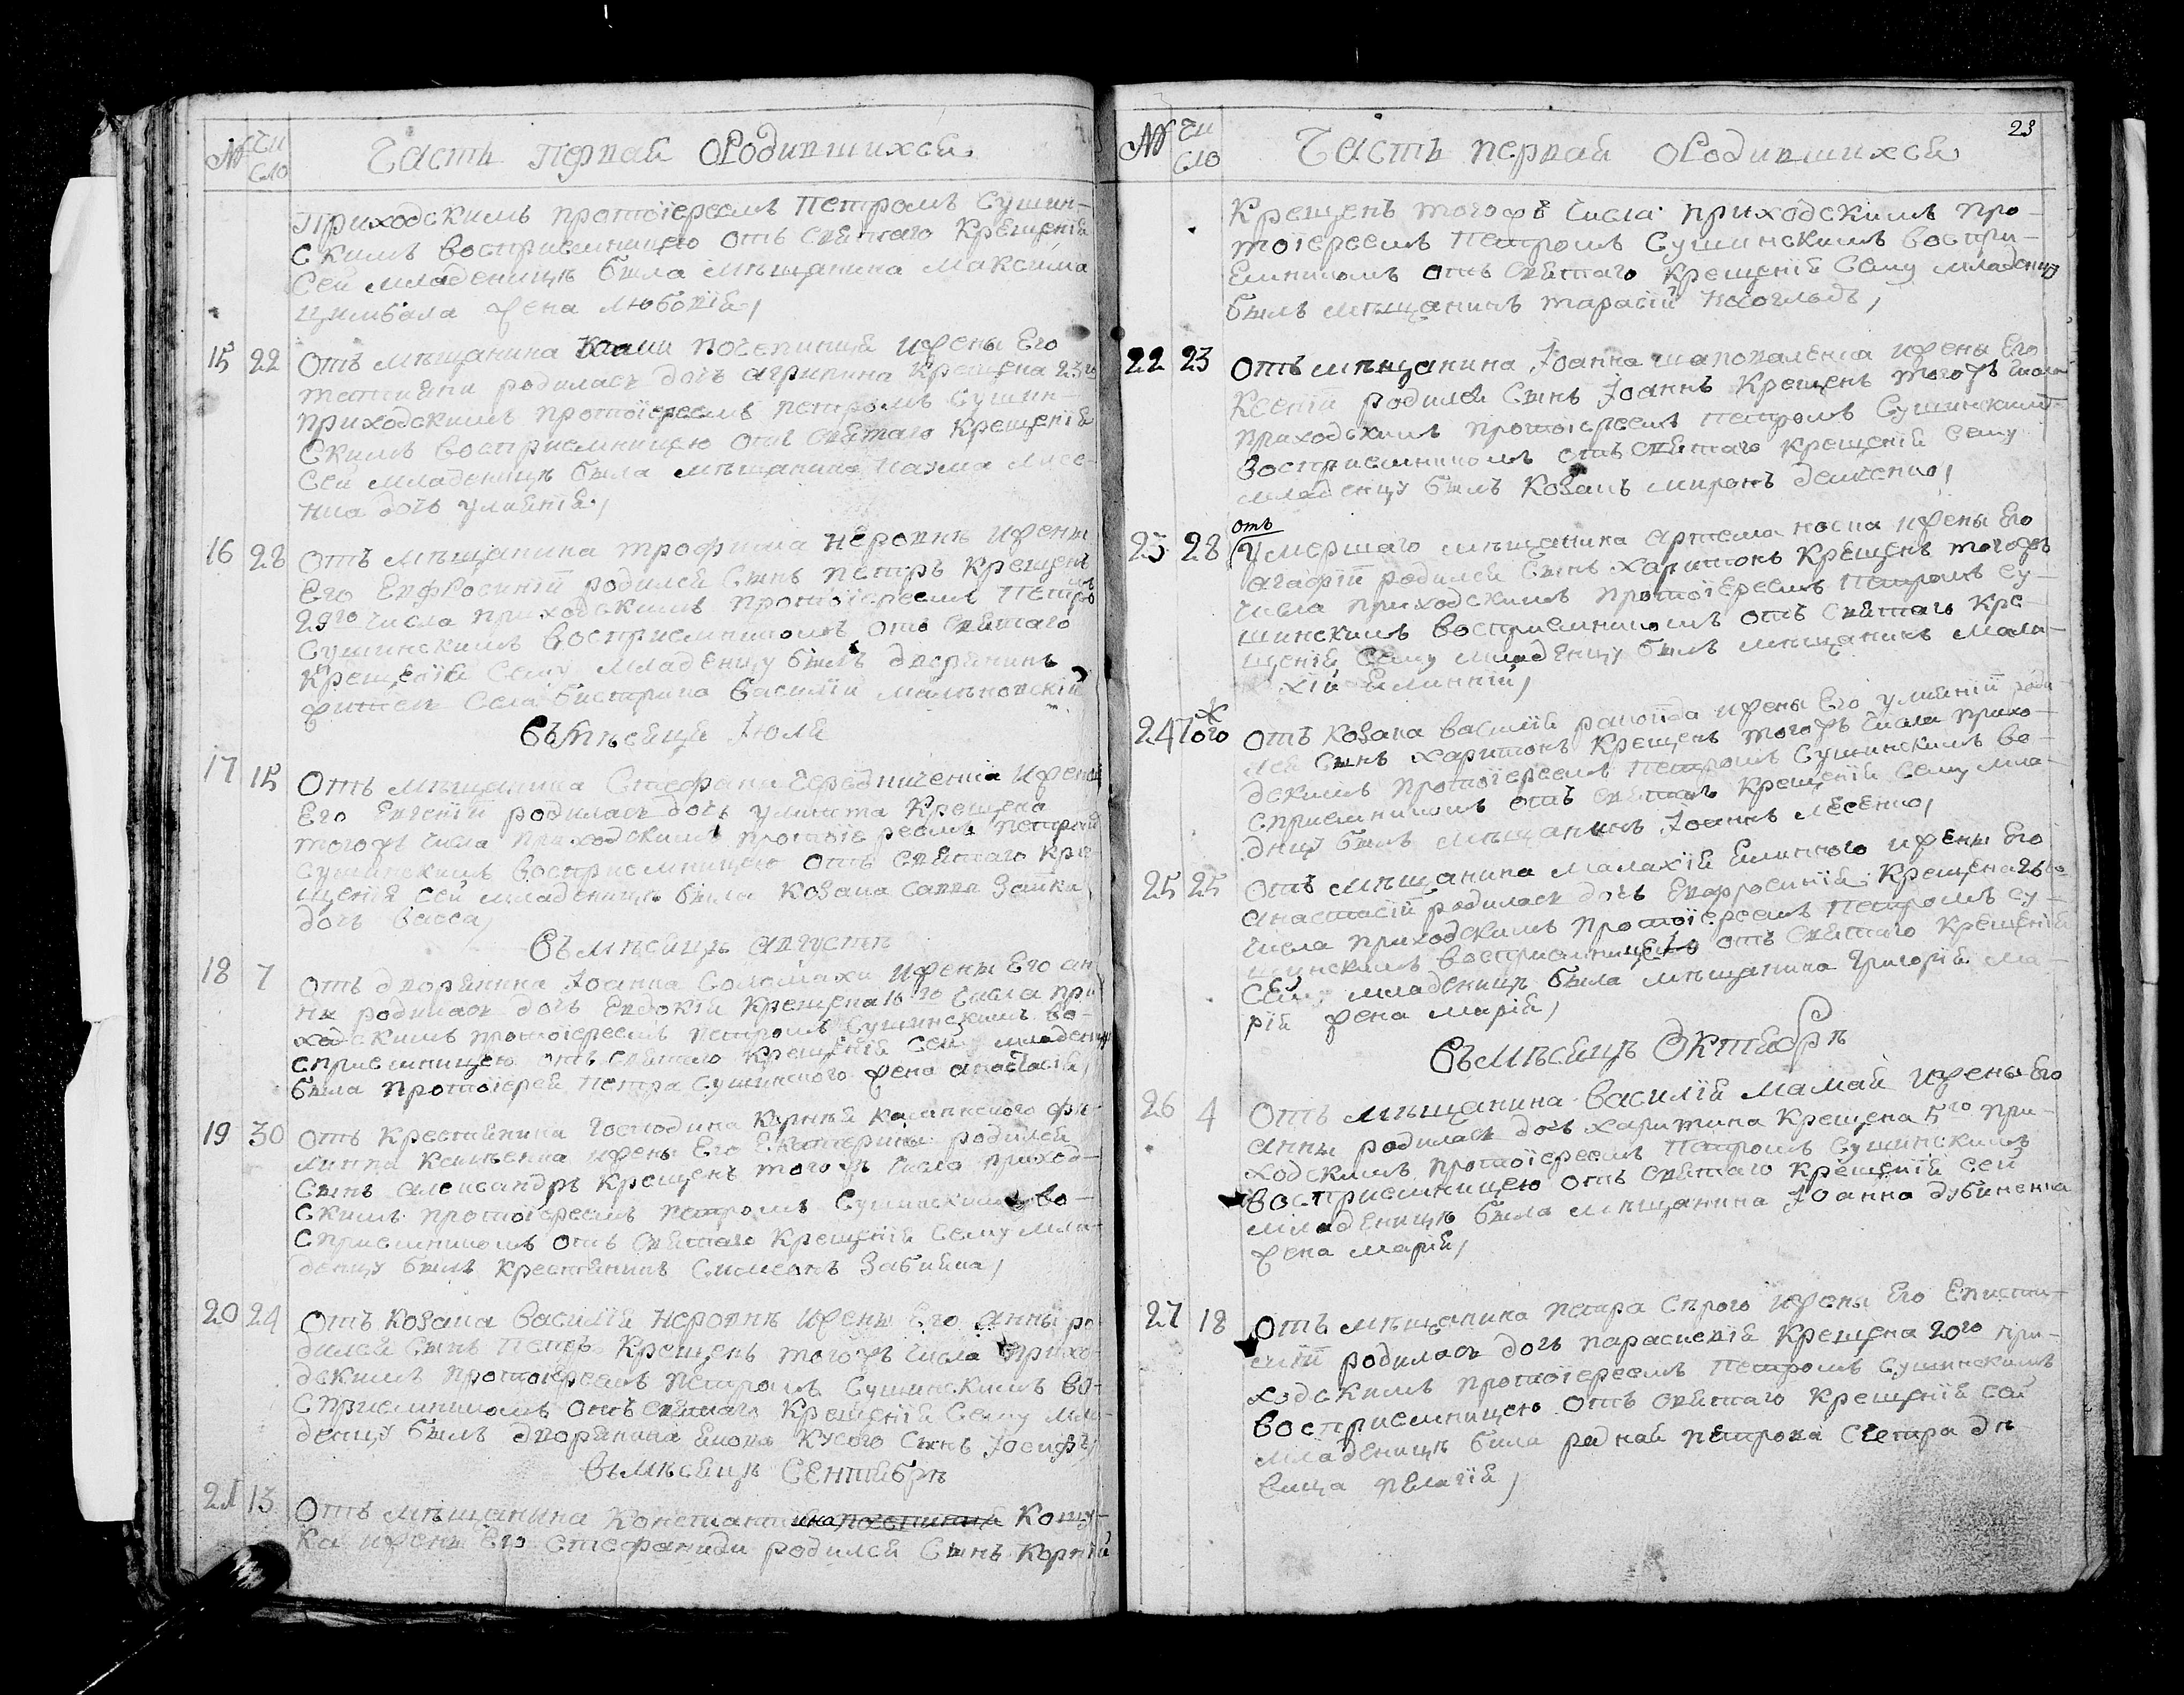 № Чи
сло
Часть первая о Родившихся
Приходскимъ протоіереемъ Петромъ Сушин-
скимъ восприемницею отъ святаго Крещенія
Сей младеницѣ была мѣщанина Максима
Цимбала жена Любовія,
15 22 Отъ мѣщанина Почепиния и жены Его
татияни родилась дочь агрипина Крещена 23го
приходскимъ протоіереемъ петромъ Сушин-
Скимъ восприемницею отъ святаго Крещенія
Сей младеницѣ была мѣщанина Наума Лисе-
нка дочь улиянія,
16 28 Отъ мѣщанина трофима Неровнѣ и жены
Его Евфросиніи родился Сынъ петръ Крещенъ
29го числа приходскимъ протоіереемъ Петро
Сушинскимъ восприемникомъ отъ святаго
Крещенія Сему младенцу былъ дворянинъ
житель Села бистрика Василій Малѣновскій
Въ Мѣсяци Іюля
17 15 Отъ мѣщанина Стефана Чередниченка и жены
Его Евгеніи родилась дочь улита Крещена
тогожъ числа приходскимъ протоіереемъ петромъ
Сушинскимъ восприемницею отъ святаго Кре-
щенія Сей младеницѣ била Козака Саввы Заики
дочь Васса,
Въ мѣсяцѣ августѣ
18 7 Отъ дворянина Іоанна Соломахи и жены Его ан
ны родилась дочь Евдокія Крещена 10го числа при
ходскимъ протоіереемъ петромъ Сушинскимъ во-
сприемницею отъ святаго Крещенія Сей младеницѣ
была протоіерея петра Сушинского жена анастасія,
19 30 Отъ Крестянина Господина Корнѣя
родился
Сынъ александръ Крещенъ тогожъ числа приход-
скимъ протоіереемъ петромъ Сушинскимъ во-
сприемникомъ отъ святаго Крещенія Сему мла-
денцу былъ крестянинъ Симеонъ Забияка,
20 24 Отъ Козака Василія Неровнѣ и жены Его анны ро
дился Сынъ Петръ Крещенъ тогожъ числа прихо-
дскимъ протоіереемъ петромъ Сушинскимъ во-
сприемникомъ отъ святаго Крещенія Сему мла-
денцу былъ дворянина Якова Кусого Сынъ Іосифъ,
въ мѣсяцѣ Сентябрѣ
21 13 Отъ мѣщанина Константина Кошу-
ка и жены Его Стефаниди родился Сынъ Корнѣй
№ Чи
сло
Часть первая о Родившихся
23
Крещенъ тогожъ числа приходскимъ про-
тоіереемъ Петромъ Сушинскимъ воспри-
емникомъ отъ святаго Крещенія Сему младенцу
былъ мѣщанинъ тарасій Носоглядъ,
22 23 Отъ мѣщанина Іоанна шаповаленка и жены Его
Ксеніи родился Сынъ Іоаннъ Крещенъ тогожъ числа
приходскимъ протоіереемъ петромъ Сушинскимъ
Восприемникомъ отъ святаго Крещенія Сему
младенцу былъ Козакъ миронъ демченко,
23 28 отъ
Умершаго мѣщанина артема носка и жены Его
агафіи родился Сынъ харитонъ Крещенъ тогожъ
числа приходскимъ протоіереемъ Петромъ Су-
шинскимъ восприемникомъ отъ святаго Кре-
щенія Сему младенцу былъ мѣщанинъ мала-
хій Ялинній,
24 Того Отъ Козака василія и жены Его улияніи роди
лся Сынъ харитонъ Крещенъ тогожъ числа прихо-
дскимъ протоіереемъ петромъ Сушинскимъ во-
сприемникомъ отъ святаго Крещенія Сему мла-
денцу былъ мѣщанинъ Іоаннъ лесенко,
25 25 Отъ мѣщанина малахія Ялинного и жены Его
анастасіи родилась дочь Евфросинія Крещена 26го
числа приходскимъ протоіереемъ Петромъ Су-
шинскимъ восприемницею отъ святаго Крещенія
Сей младеницѣ была мѣщанина григорія ма-
рій жена марія,
Въ Мѣсяцѣ Октябрѣ
26 4 Отъ мѣщанина василія мамая и жены Его
анны родилась дочь харитина Крещена 5го при-
ходскимъ протоіереемъ Петромъ Сушинскимъ
восприемницею отъ святаго Крещенія Сей
младеницѣ была мѣщанина Іоанна дубиненка
жена марія,
27 18 Отъ мѣщанина петра Сѣрого и жены Его Еписти-
міи родилась дочь параскевія Крещена 20го при-
ходскимъ протоіереемъ Петромъ Сушинскимъ
восприемницею отъ святаго Крещенія Сей
младеницѣ била родная петрова Сестра дѣ
вица пелагія,